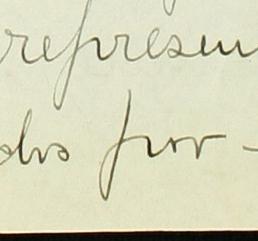 represen
dos por -